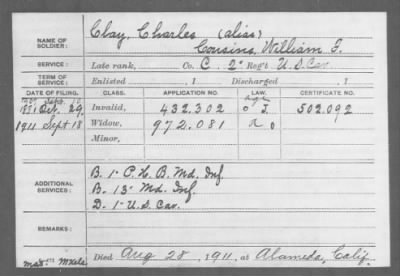 NAME OF SOLDIER: Clay, Charles (alias)
Cousins, William F.
SERVICE: Late rank, Co. C. 2" Reg't U.S. Cav.
TERM OF SERVICE: Enlisted , 1 Discharged , 1
DATE OF FILING. CLASS. APPLICATION NO. LAW. CERTIFICATE NO.
Sept. 10 age
Oct. 29. Invalid, 432.302 F. 502.092
1911 Sept 18 Widow, 972.081
Minor,
B. 1" P.H.B. Md. Inf
ADDITIONAL SERVICES: B. 13" Md. Inf.
D. 1" U.S. Cav.
REMARKS:
Died Aug 28, 1911, at Alameda, Calif.